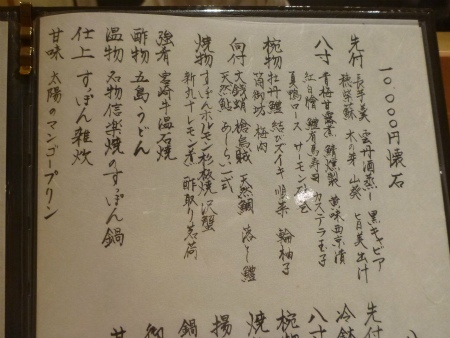 一〇、〇〇〇円懐石
先付 長芋羹 雲丹酒蒸し 黒キャビア
穂紫蘇 木の芽 山葵 旨美出汁
八寸 青梅甘露煮 鮭燻製 黄味西京漬
紅白膾 鱧有馬寿司 カステラ玉子
真鴨ロース サーモン
椀物 牡丹鱧 結びズイキ 順菜 輪柚子
梅肉
向付 大銭蛸 捻烏賊 天然鯛 落し鱧
天然鮎 あしらい一式
焼物 すっぽんホルモン杉板焼 沢蟹
新丸十レモン煮 酢取り茗荷
強肴 宮崎牛温石焼
酢物 五島うどん
温物 名物信楽焼のすっぽん鍋
仕上 すっぽん雑炊
甘味 太陽のマンゴープリン
先付
冷鉢
八寸
椀物
焼
揚
鍋
御
甘